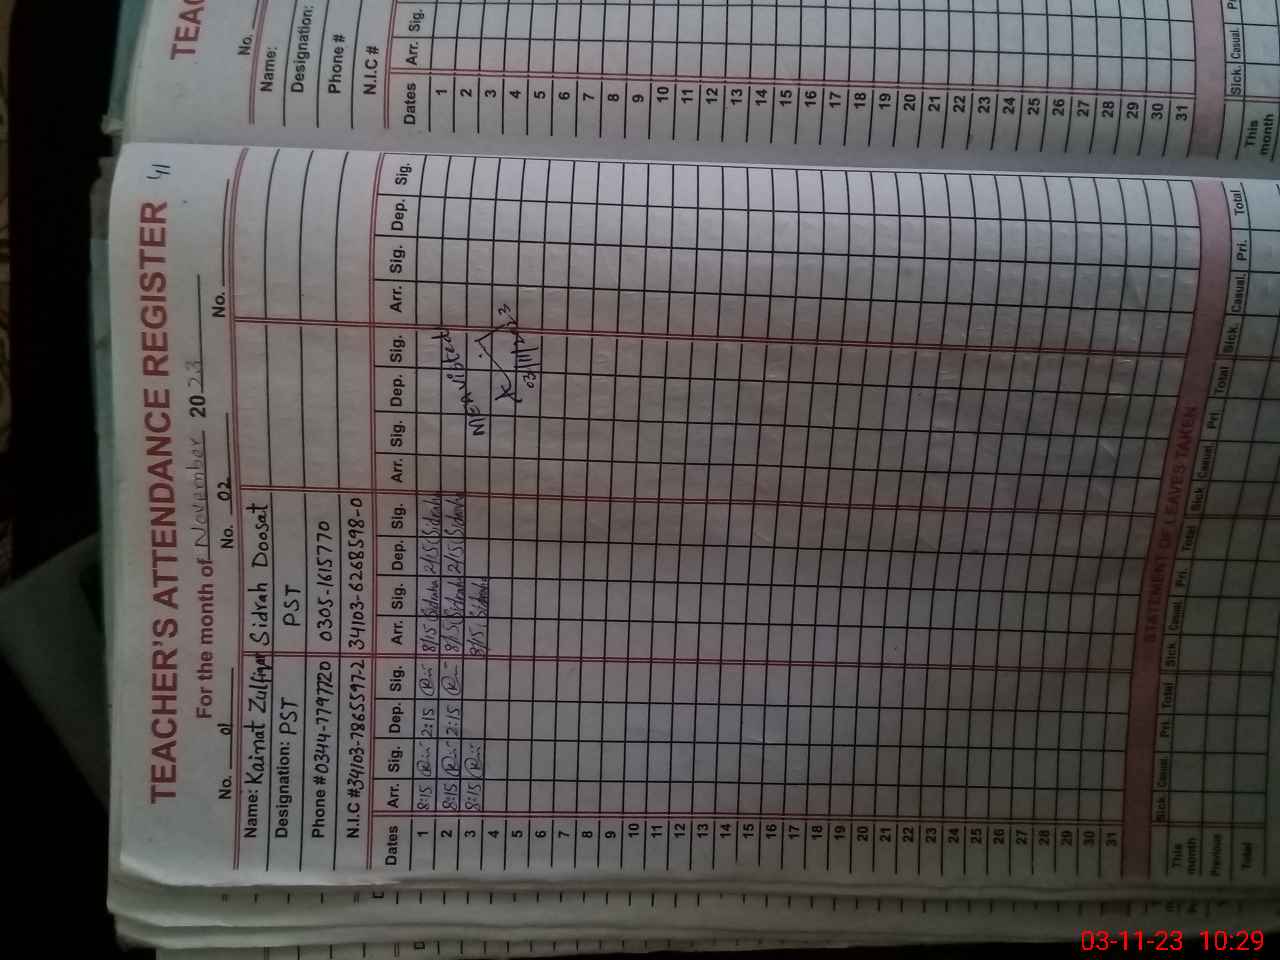 TEACHER'S ATTENDANCE REGISTER 41
For the month of November 2023
No. 01 No. 02 No.
Name: Kainat Zulfiqar Sidrah Doosat
Designation: PST PST
Phone # 0344-7797720 0305-1615770
N.I.C # 34103-7865597-2 34103-6268598-0
Dates Arr. Sig. Dep. Sig. Arr. Sig. Dep. Sig. Arr. Sig. Dep. Sig. Arr. Sig. Dep. Sig.
1 8:15 2:15 8/15 Sidrah 2/15 Sidrah
2 8:15 2:15 8/15 Sidrah 2/15 Sidrah
3 8:15 8/15 Sidrah
MEA visited
03/11/2023
4
5
6
7
8
9
10
11
12
13
14
15
16
17
18
19
20
21
22
23
24
25
26
27
28
29
30
31
STATEMENT OF LEAVES TAKEN
Sick Casual Pri. Total Sick Casual Pri. Total Sick Casual Pri. Total Sick. Casual. Pri. Total
This month
Previous
Total
TEAC
No.
Name:
Designation:
Phone #
N.I.C #
Dates Arr. Sig.
1
2
3
4
5
6
7
8
9
10
11
12
13
14
15
16
17
18
19
20
21
22
23
24
25
26
27
28
29
30
31
Sick. Casual.
This month
03-11-23 10:29